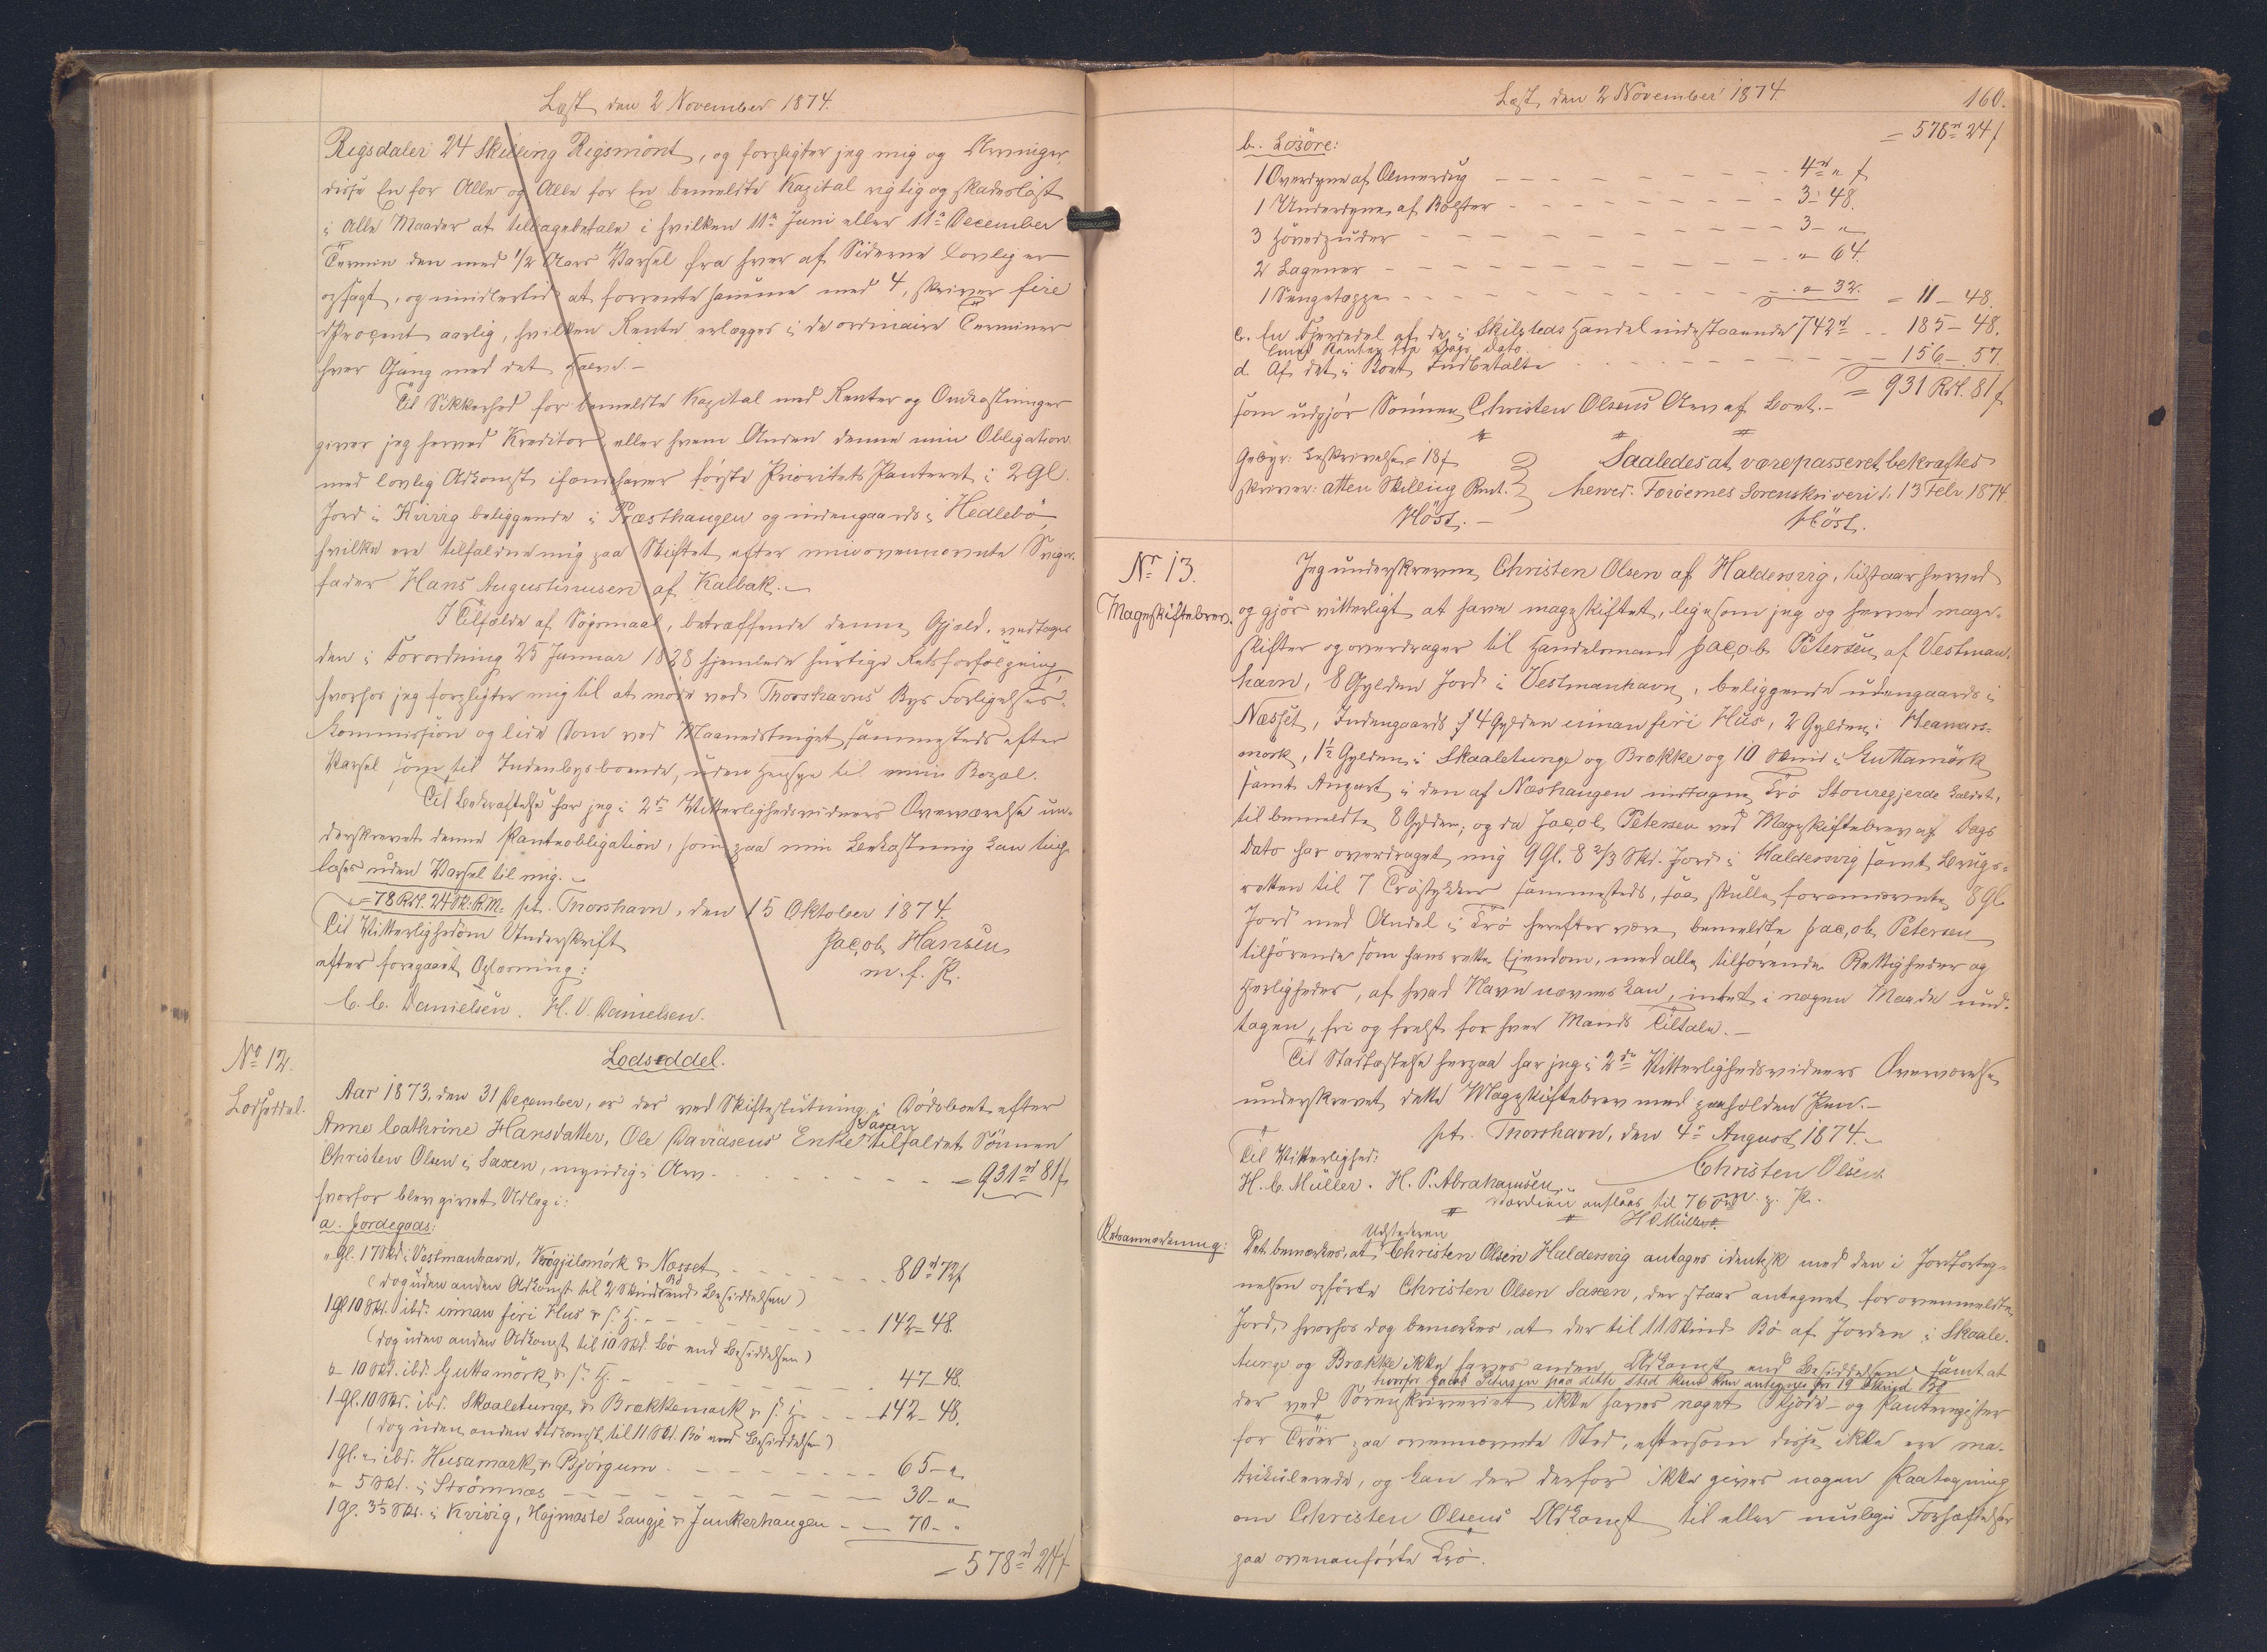 Læst den 2 November 1874.
Rigsdaler 24 Skilling Rigsmönt, og forpligter jeg mig og Arvinger
disse En for Alle og Alle for En bemeldte Kapital rigtig og skadeslöst
i alle Maader at tilbagebetale i hvilken 11te Juni eller 11te December
Termin den med 1/2 Aars Varsel fra hver af Siderne lovlig er
opsagt, og imidlertid at forrente samme med 4, skriver fire
Procent aarlig, hvilken Rente erlægges i de ordinaire Terminer
hver Gang med det halve.-
Til Sikkerhed for bemeldte Kapital med Renter og Omkostninger
giver jeg herved Kreditor eller hvem Anden denne min Obligation
med lovlig Adkomst ihændehaver förste Prioritets Panteret i 2 Gl.
Jord i Kvivig beliggende i Præsthaugen og indengaards i Hedlebö
hvilke ere tilfaldne mig paa Skiftet efter min ovennævnte Sviger-
fader Hans Augustinusen af Kalbak.-
I Tilfælde af Sögsmaal, betræffende denne Gjæld, vedtages
den i Forordning 25 Januar 1828 hjemlede hurtige Retsforfölgning,
hvorhos jeg forpligter mig til at möde ved Thorshavns Bys Forligelses-
kommission og lide Dom ved Maanedstinget sammesteds efter
Varsel som til Indenbysboende, uden Hensyn til min Bopæl.
Til Bekræftelse har jeg i 2de Vitterlighedsvidners Overværelse un-
derskrevet denne Panteobligation, som paa min Bekostning kan ting-
læses uden Varsel til mig.-
= 78 Rdl. 24 Sk. R.M. pt. Thorshavn, den 15 Oktober 1874.
Til Vitterlighed om Underskrift
Jacob Hansen
efter foregaaet Oplæsning:
m. f. P.
C. C. Danielsen. H. V. Danielsen.
No 12.
Lodseddel.
Lodseddel.
Aar 1873, den 31 December, er der ved Skifteslutning i Dödsboet efter
Anne Cathrine Hansdatter, Ole Daviasens Enke Saxen tilfaldet Sönnen
Christen Olsen i Saxen, myndig i Arv - - - = 931 rd 81 s
hvorfor blev givet Udlæg i:
a. Jordegods:
" Gl. 17 Skd. i Vestmanhavn, Krögjilsmörk & Nesset - - - 80 rd 72 s
(dog uden anden Adkomst til 2 Skind Bö end Besiddelsen)
1 Gl 10 Skd. ibd. innan firi Hus & s. H. - - - 142 - 48.
(dog uden anden Adkomst til 10 Skd. Bö end Besiddelsen)
" 10 Skd. ibd. Guttamörk & s. H. - - - 47 - 48.
1 Gl. 10 Skd. ibd. Skaaletunge & Brækkemark & s. H. - - - 142 - 48.
(dog uden anden Adkomst til 11 Skd. Bö end Besiddelsen)
1 Gl. " ibd. Husamark & Bjørgum - - - 65 - "
" 5 Skd. i Strömnæs - - - 30 - "
1 Gl. 3 1/3 Skd. i Kvivig, Hojmaste Laugje & Junkerhaugen - - 70 - "
= 578 rd 24 s
Læst den 2 November 1874
160.
= 578 rd 24 s
b. Lösöre:
1 Overdyne af Olmerdug - - - 4 rd " s
1 Underdyne af Bolster - - - 3 - 48.
3 Hovedpuder - - - 3 - "
2 Lagener - - - " 64.
1 Sengetæppe - - - " 32. = 11 - 48.
c. En Fjerdedel af det i Skibsteds Handel indestaaende 742 rd - - 185 - 48.
med Renter fra Dags Dato
d. Af det i Boet Indbetalte - - - 156 - 57.
som udgjör Sönnen Christen Olsens Arv af Boet.- = 931 Rdl. 81 s
Gebyr: Beskrivelse = 18 s
skriver: atten Skilling Rmt.
Höst.-
Saaledes at være passeret bekræftes
herved. Færöernes Sorenskriveri d. 13 Febr. 1874
Höst.
Nr 13.
Mageskiftebrev.
Jeg underskrevne Christen Olsen af Haldersvig, tilstaar herved
og gjör vitterligt at have mageskiftet, ligesom jeg og herved mage-
skifter og overdrager til Handelsmand Jacob Petersen af Vestman-
havn, 8 Gylden Jord i Vestmanhavn, beliggende udengaards i
Næsset, Indengaards 4 Gylden innan firi Hus, 2 Gylden i Heamars-
mark, 1 1/2 Gylden i Skaaletunge og Brække og 10 Skind i Guttamörk
samt Anpart i den af Næshaugen indtagne Trö Stouregjerde kaldet,
til bemeldte 8 Gylden; og da Jacob Petersen ved Mageskiftebrev af Dags
Dato har overdraget mig 9 Gl. 8 2/3 Skd. Jord i Haldersvig samt Brugs-
retten til 7 Tröstykker sammesteds, saa skulle forannævnte 8 Gl.
Jord med Andel i Trö herefter være bemeldte Jacob Petersen
tilhörende som hans rette Ejendom, med alle tilhörende Rettigheder og
Herligheder, af hvad Navn nævnes kan, intet i nogen Maade und-
tagen, fri og frelst for hver Mands Tiltale.-
Til Stadfæstelse herpaa har jeg i 2de Vitterlighedsvidners Overværelse
underskrevet dette Mageskiftebrev med paaholden Pen.-
pt. Thorshavn, den 4de August 1874.-
Til Vitterlighed:
Christen Olsen
H. C. Müller. H. P. Abrahamsen.
m. p. P.
Værdien anslaas til 76
H C Müller.
Retsanmærkning:
Det bemærkes, at Udstederen Christen Olsen Haldersvig antages identisk med den i Jordforteg-
nelsen opförte Christen Olsen Saxen, der staar antegnet for ovenmeldte
Jord, hvorhos dog bemærkes, at der til 11 Skind Bö af Jorden i Skaale-
tunge og Brække ikke haves anden Adkomst end Besiddelsen samt at
hvorfor Jacob Petersen paa dette Sted kun kan antegnes for 19 Skind Bö
der ved Sorenskriveriet ikke haves noget Skjöde- og Panteregister
for Tröer paa ovennævnte Sted, eftersom disse ikke ere ma-
trikulerede, og kan der derfor ikke gives nogen Paategning
om Christen Olsens Adkomst til eller mulige Forhæftelser
paa ovenanförte Trö.